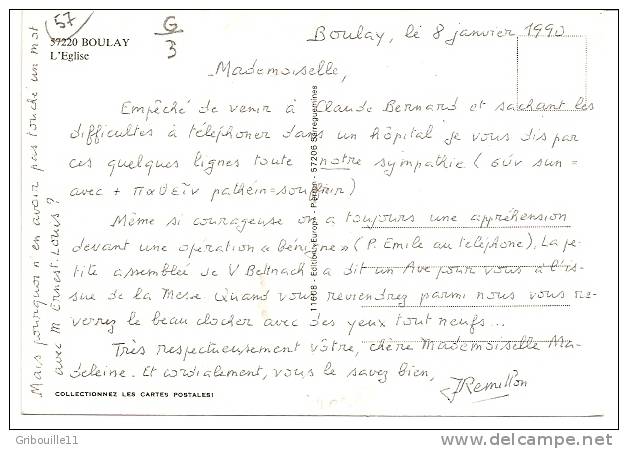 57
G
3
57220 BOULAY
L'Eglise
Boulay, le 8 janvier 1990
Mademoiselle,
Empêché de venir à Claude Bernard et sachant les
difficultés à téléphoner dans un hôpital je vous dis par
ces quelques lignes toute notre sympathie (σύν sun =
avec + παθεῖν pathéin = souffrir)
Même si courageuse on a toujours une appréhension
devant une operation « bénigne » (P. Emile au téléphone). La pe-
tite assemblée de V Bettnach a dit un Ave pour vous à l'is-
sue de la Messe. Quand vous reviendrez parmi nous vous re-
verrez le beau clocher avec des yeux tout neufs...
Très respectueusement vôtre, chère Mademoiselle Ma-
deleine. Et cordialement, vous le savez bien,
JRemillon
Mais pourquoi n'en avoir pas touché un mot
avec M Ernest-Louis ?
11608 - Edition Europ - Pierron - 57206 Sarreguemines
COLLECTIONNEZ LES CARTES POSTALES!
Gribouille11
http://www.delcampe.net